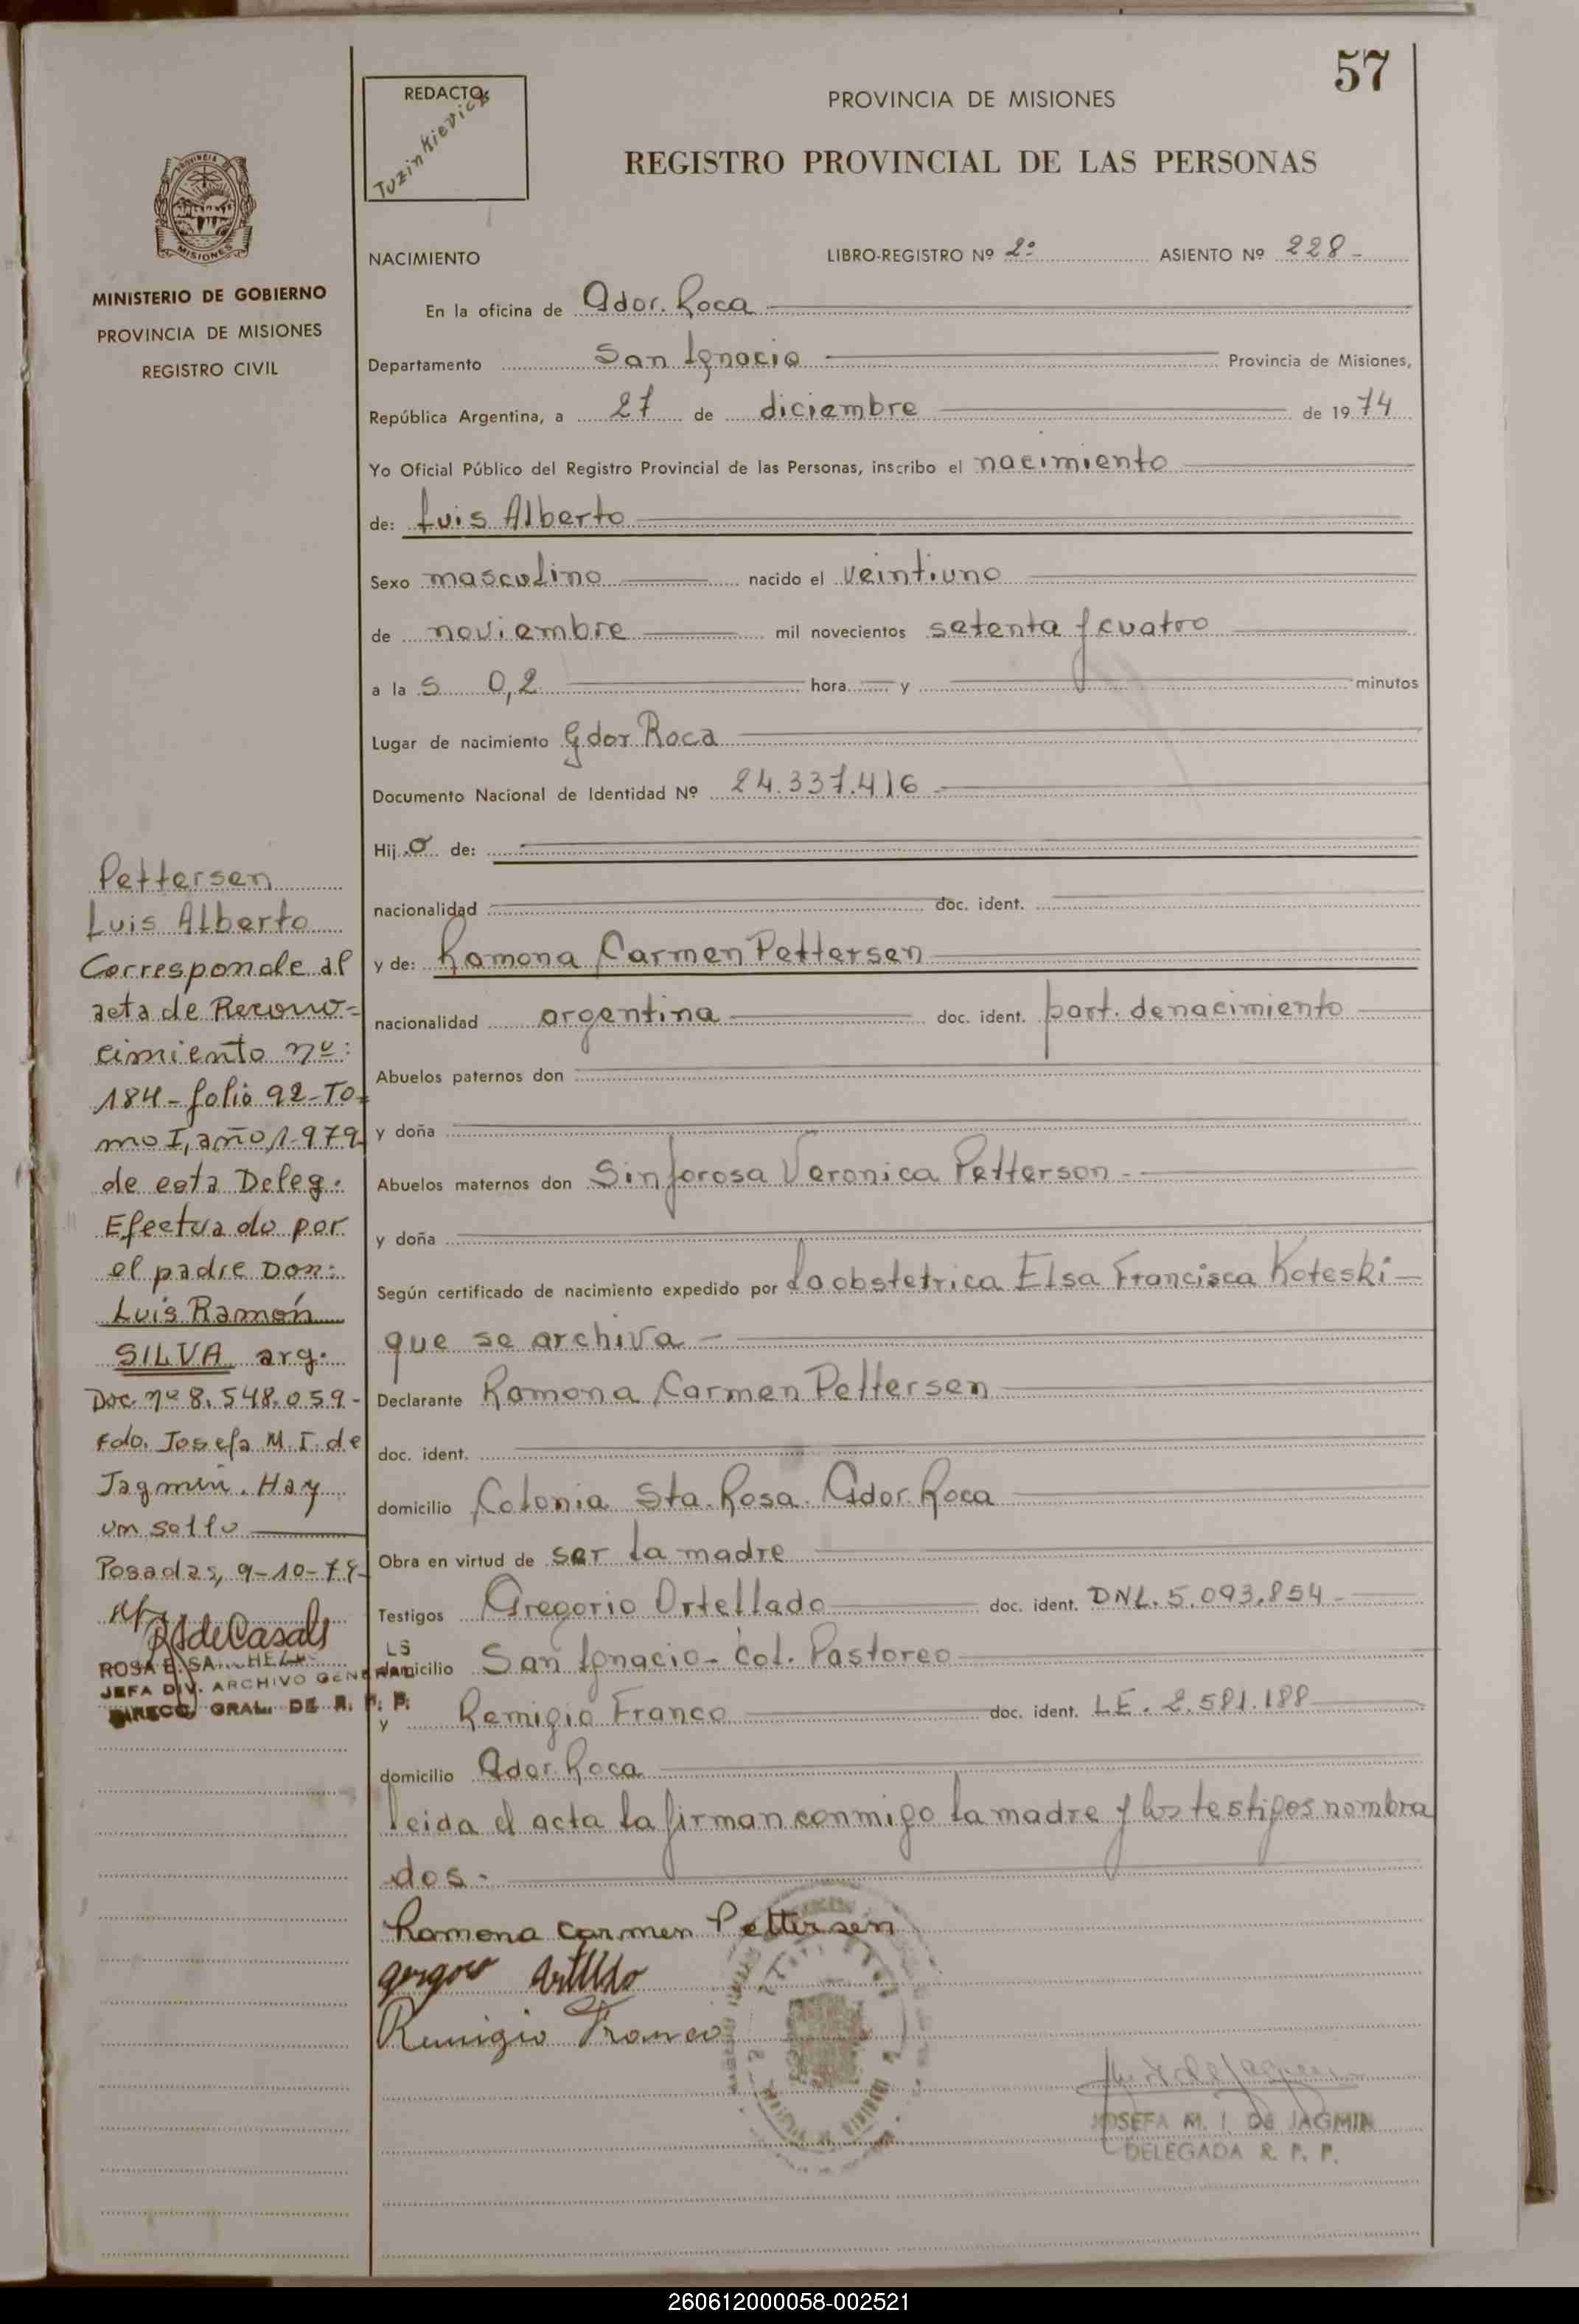 57
REDACTO:
Tuzinkievicz
PROVINCIA DE MISIONES
REGISTRO PROVINCIAL DE LAS PERSONAS
PROVINCIA DE
MISIONES
MINISTERIO DE GOBIERNO
PROVINCIA DE MISIONES
REGISTRO CIVIL
NACIMIENTO LIBRO-REGISTRO Nº 2º ASIENTO Nº 228-
En la oficina de Gdor. Roca
Departamento San Ignacio Provincia de Misiones,
República Argentina, a 27 de diciembre de 1974
Yo Oficial Público del Registro Provincial de las Personas, inscribo el nacimiento
de: Luis Alberto
Sexo masculino nacido el veintiuno
de noviembre mil novecientos setenta y cuatro
a las 0,2 hora y minutos
Lugar de nacimiento Gdor Roca
Documento Nacional de Identidad Nº 24.337.416
Hijo de:
nacionalidad doc. ident.
y de: Ramona Carmen Pettersen
nacionalidad argentina doc. ident. part. de nacimiento
Abuelos paternos don
y doña
Abuelos maternos don Sinforosa Veronica Petterson
y doña
Según certificado de nacimiento expedido por la obstetrica Elsa Francisca Koteski
que se archiva
Declarante Ramona Carmen Pettersen
doc. ident.
domicilio Colonia Sta. Rosa. Gdor. Roca
Obra en virtud de ser la madre
Testigos Gregorio Ortellado doc. ident. DNI. 5.093.854
domicilio San Ignacio- Col. Pastoreo
y Remigio Franco doc. ident. LE. 2.581.188
domicilio Gdor. Roca
leida el acta la firman conmigo la madre y los testigos nombra
dos.-
Ramona Carmen Pettersen
Remigio Franco
JOSEFA M. I. De JAGMIN
DELEGADA R. P. P.
Pettersen
Luis Alberto
Corresponde al
acta de Recono=
cimiento nº:
184- folio 92- To=
mo I, año 1.979
de esta Deleg.
Efectuado por
el padre Don:
Luis Ramón
SILVA arg.
Doc. nº 8.548.059-
Fdo. Josefa M. I. de
Jagmin. Hay
un sello
Posadas, 9-10-79-
LS
JEFA DIV. ARCHIVO GENERAL
DIRECC. GRAL. DE R. P. P.
260612000058-002521